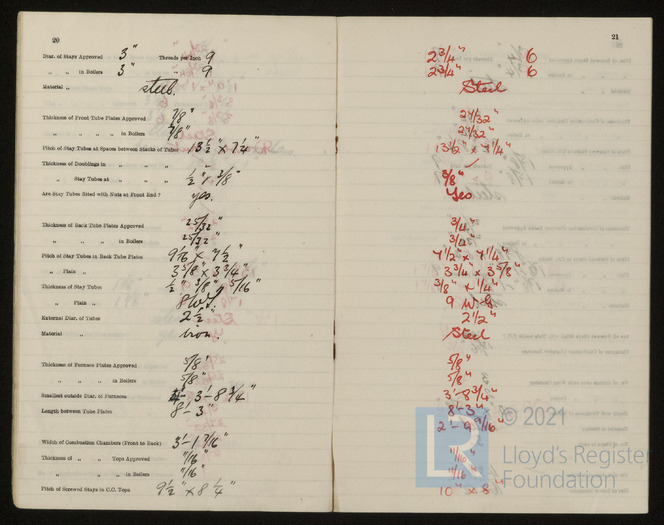 20
Diar. of Stays Approved 3" Threads per Inch 9
" " in Boilers 3" " 9
Material " steel.
Thickness of Front Tube Plates Approved 7/8"
" " " " in Boilers 7/8"
Pitch of Stay Tubes at Spaces between Stacks of Tubes 13 1/2" x 7 1/4"
Thickness of Doublings in " " " -
" Stay Tubes at " " 1/2" x 3/8"
Are Stay Tubes fitted with Nuts at Front End? yes.
Thickness of Back Tube Plates Approved 25/32"
" " " in Boilers 25/32"
Pitch of Stay Tubes in Back Tube Plates 7 1/2"
" Plain " 3 5/8" x 3 3/4"
Thickness of Stay Tubes 1/2" 3/8" 5/16"
" Plain " 8 W.G.
External Diar. of Tubes 2 1/2"
Material " iron.
Thickness of Furnace Plates Approved 5/8"
" " " in Boilers 5/8"
Smallest outside Diar. of Furnaces 3'-8 3/4"
Length between Tube Plates 8'-3"
Width of Combustion Chambers (Front to Back) 3'-1 7/16"
Thickness of " " Tops Approved 11/16"
" " " in Boilers 11/16"
Pitch of Screwed Stays in C.C. Tops 9 1/2" x 8 1/4"
21
2 3/4" 6
2 3/4" 6
Steel
27/32"
27/32"
13 1/2" x 7 1/4"
-
3/8"
Yes
3/4"
3/4"
7 1/2" x 7 1/4"
3 3/4" x 3 5/8"
3/8" x 1/4"
9 W.G.
2 1/2"
Steel
5/8"
5/8"
3'-8 3/4"
8'-3"
2'-9 9/16"
11/16"
11/16"
10" x 8"
© 2021
LR
Lloyd's Register
Foundation